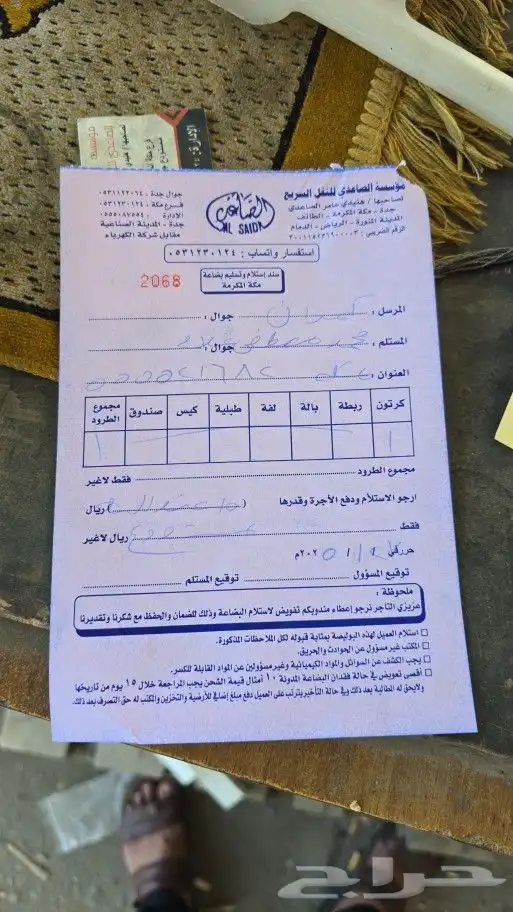 الإدارة :
مؤسسة
الصاعدي
مؤسسة الصاعدي للنقل السريع
لصاحبها / هنيدي عامر الصاعدي
جدة - مكة المكرمة - الطائف
المدينة المنورة - الرياض - الدمام
الصاعدي
AL SAIDI
جوال جدة : ٠٥٣١١٢٣٠٦٤
فرع مكة : ٠٥٣١٢٣٠١٢٤
جدة - المدينة الصناعية
مقابل شركة الكهرباء
استفسار واتساب : ٠٥٣١٢٣٠١٢٤
سند إستلام وتسليم بضاعة
مكة المكرمة
2068
المرسل : جوال :
المستلم : محمد مصطفى جوال :
العنوان : مكه
كرتون ربطة بالة لفة طبلية كيس صندوق مجموع الطرود
١ ١
مجموع الطرود فقط لاغير
ارجو الاستلام ودفع الأجرة وقدرها ( ) ريال
فقط ريال لاغير
حرر في / ١ / ٢٠٢٥م
توقيع المسؤول توقيع المستلم
ملحوظة :
عزيزي التاجر نرجو إعطاء مندوبكم تفويض لاستلام البضاعة وذلك للضمان والحفظ مع شكرنا وتقديرنا
استلام العميل لهذه البوليصة بمثابة قبوله لكل الملاحظات المذكورة.
المكتب غير مسؤول عن الحوادث والحريق.
يجب الكشف عن السوائل والمواد الكيميائية وغير مسؤولين عن المواد القابلة للكسر.
أقصى تعويض في حالة فقدان البضاعة المدونة ١٠ أمثال قيمة الشحن يجب المراجعة خلال ١٥ يوم من تاريخها
ولايحق له الطالبة بعد ذلك وفي حالة التأخير يترتب على العميل دفع مبلغ إضافي للأرضية والتخزين والمكتب له حق التصرف بعد ذلك.
حراج